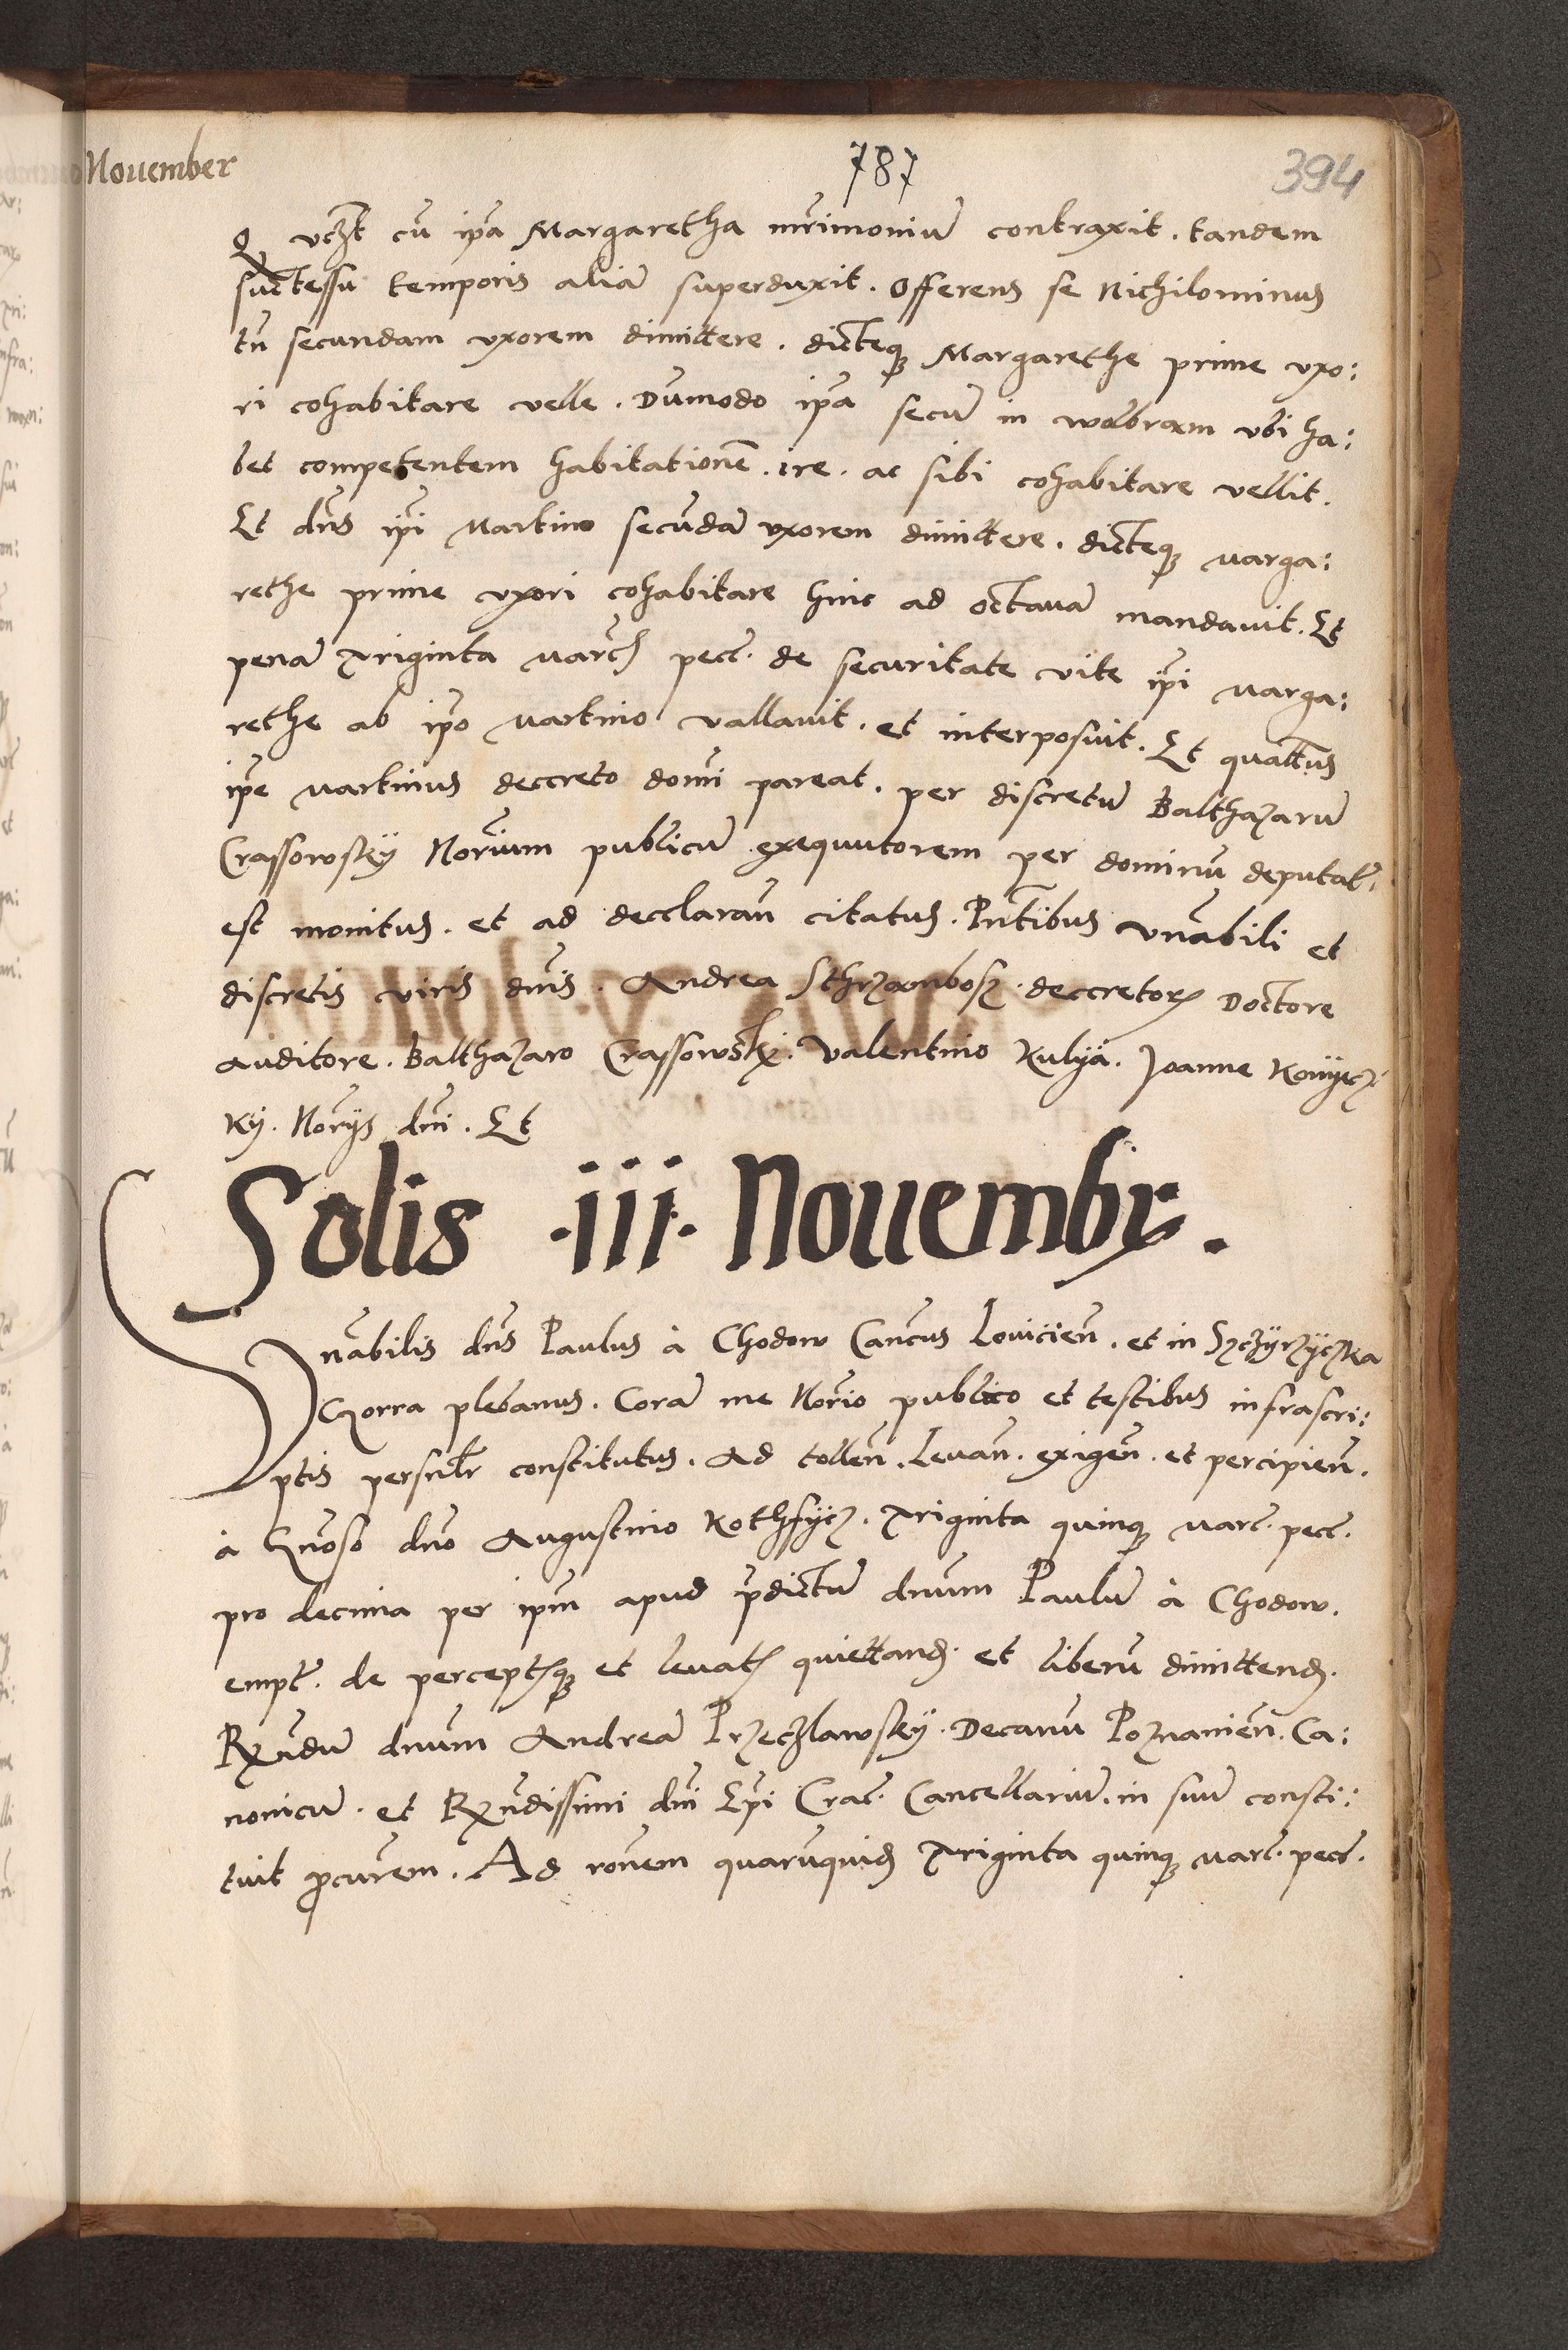 November
787
394
Q vczt cu ipa Margaretha mrimoniu contraxit . tandem
suctessu temporis alia superduxit . Offerens se Nichilominus
tn secundam vxorem dimittere . dicteq Margarethe prime vxo:
ri cohabitare velle . Dumodo ipa secu in wolbram vbi ha:
bet competentem habitatione . ire . ac sibi cohabitare vellit .
Et dns ipi Martino secuda vxorem dimittere . dicteq Marga:
rethe prime vxori cohabitare hinc ad octaua mandauit . Et
pena Triginta Marc pecc . de securitate vite ipi Marga:
rethe ab ipo Martino vallauit . et interposuit . Et quattus
ipe Martinus deccreto domi pareat . per discretu Balthazaru
Crassowsky Norium publicu exequutorem per dominu deputat .
est monitus . et ad decclaran citatus . Pntibus vnabili et
discretis viris dnis . Andrea Sthrzambosz . deccretor Doctore
Auditore . Balthazaro Crassowsky . Valentino Kulya . Joanne Konyecz
ky . Norys dni . Et
Solis .iii. Nouembr .
Vnabilis dns Paulus à Chodow Cancus Louicien . et in Szczyrzyczka
Gorra plebanus . Cora me Norio publico et testibus infrascri:
ptis personlr constitutus . Ad tollen . Leuan . exigen . et percipien .
à Gnoso dno Augustino Kothfycz . Triginta quinq Marc . pecc .
pro decima per ipm apud pdictu dnum Paulu à Chodow .
empt . de perceptq et leuat quiettand . et liberu dimittend .
Rxndu dnum Andrea Przeczlawsky . Decanu Poznanien . Ca:
nonicu . et Rxndissimi dni Epi Crac . Cancellariu . in suu consti:
tuit pcurem . Ad ronem quaruquid Triginta quinq Marc . pecc .